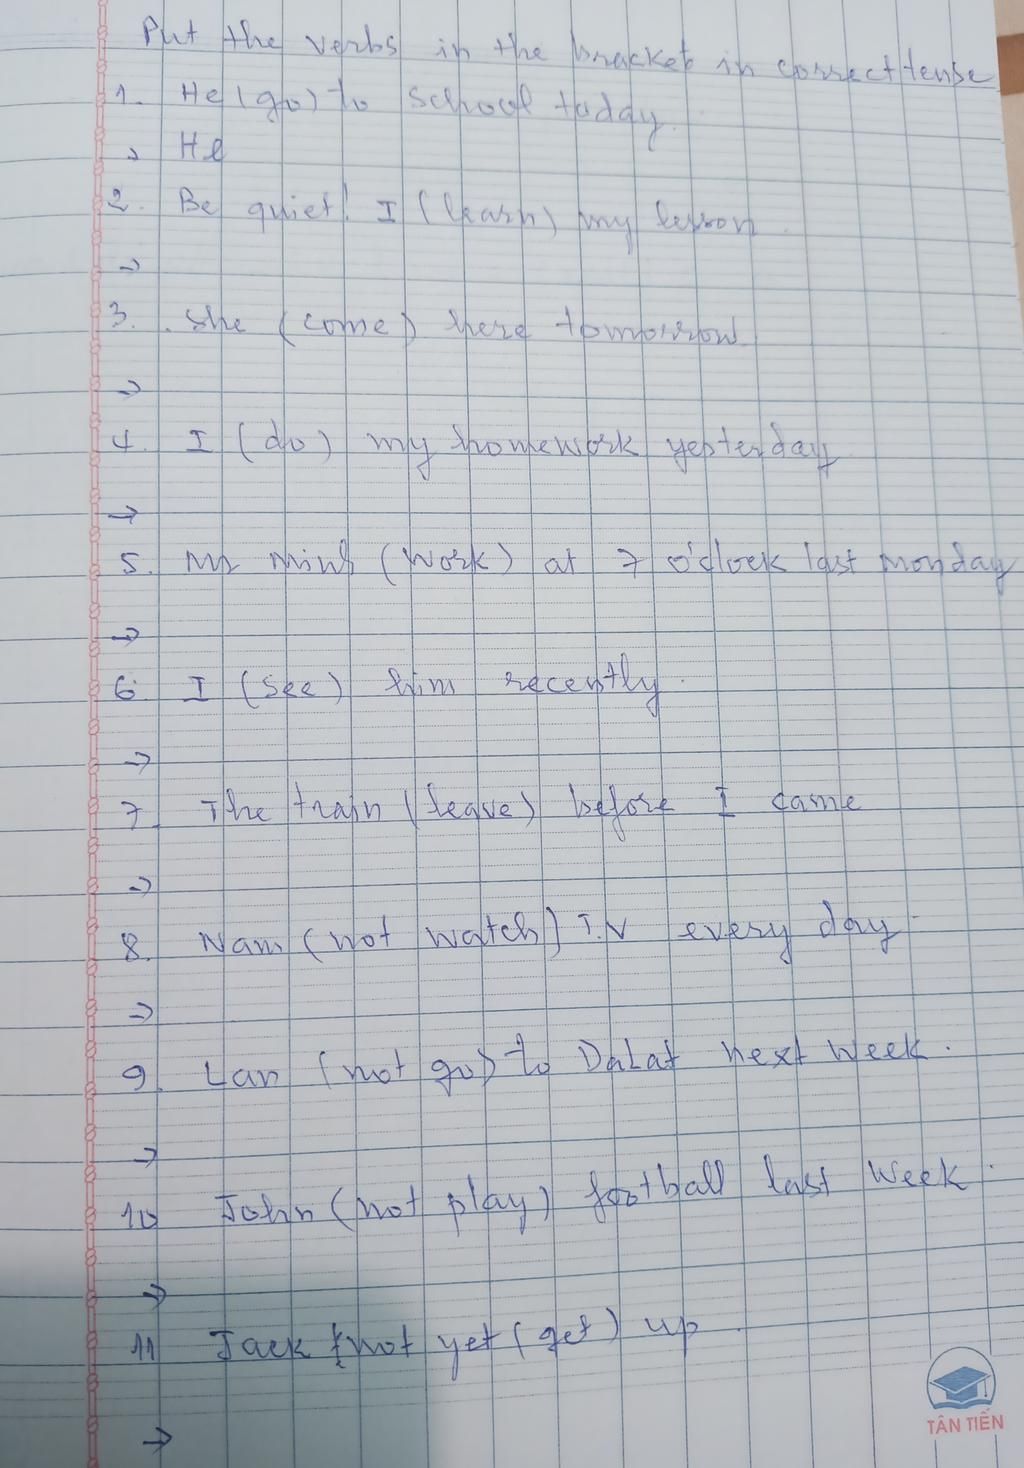 Put the verbs in the bracket in correct tense
1. He (go) to school today.
→ He
2. Be quiet! I (learn) my lesson.
→
3. She (come) here tomorrow.
→
4. I (do) my homework yesterday
→
5. Mr Minh (work) at 7 o'clock last monday
→
6. I (see) him recently.
→
7. The train (leave) before I came
→
8. Nam (not watch) T.V every day.
→
9. Lan (not go) to DaLat next week.
→
10 John (not play) football last week.
→
11 Jack (not yet (get) up.
→
TÂN TIẾN